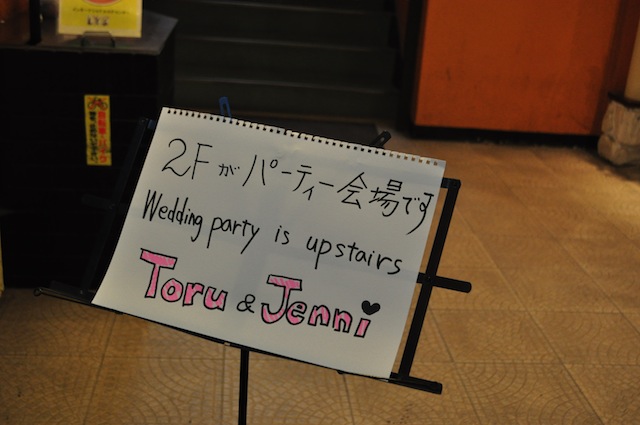 2Fがパーティー会場です
Wedding party is upstairs
Toru & Jenni